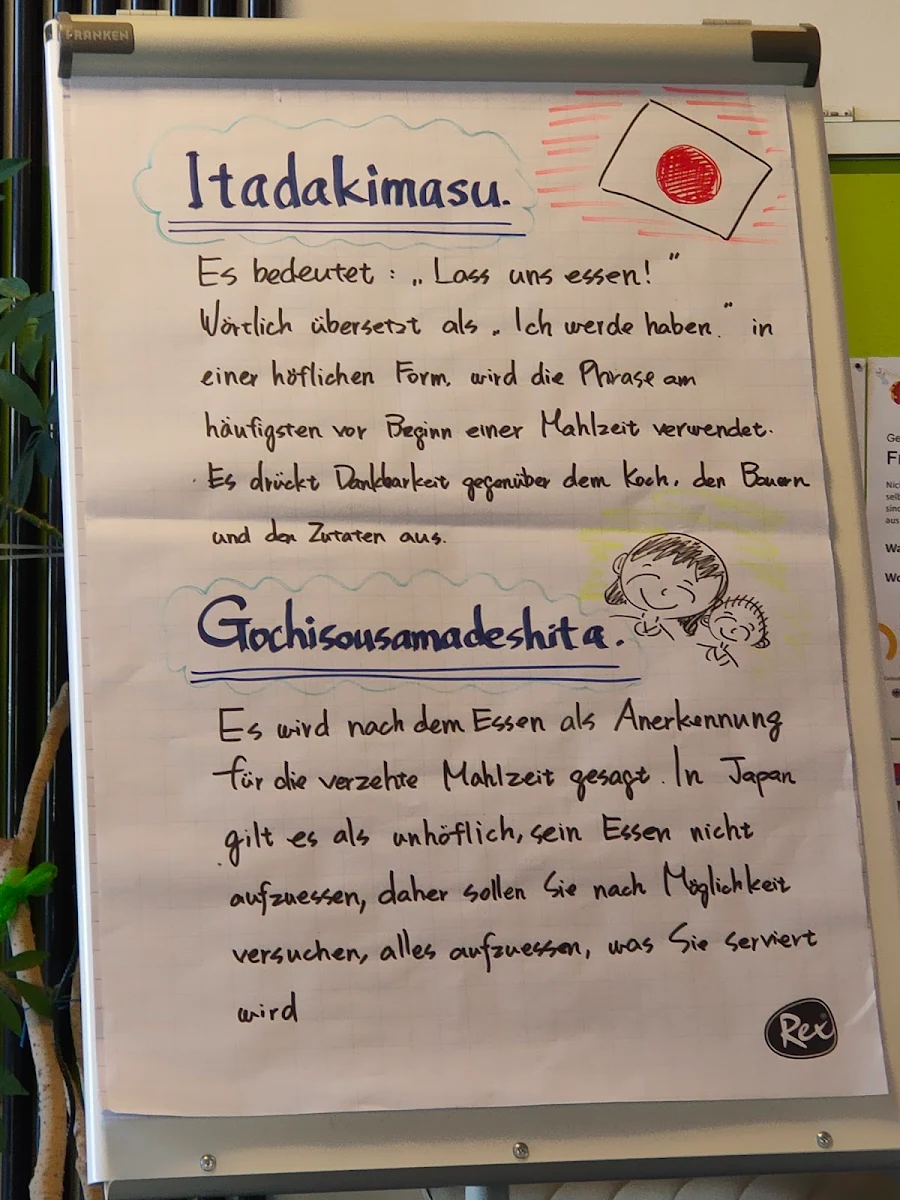 FRANKEN
Itadakimasu.
Es bedeutet : „Lass uns essen!"
Wörtlich übersetzt als „Ich werde haben." in
einer höflichen Form, wird die Phrase am
häufigsten vor Beginn einer Mahlzeit verwendet.
Es drückt Dankbarkeit gegenüber dem Koch, den Bauern
und den Zutaten aus.
Gochisousamadeshita.
Es wird nach dem Essen als Anerkennung
für die verzehte Mahlzeit gesagt. In Japan
gilt es als unhöflich, sein Essen nicht
aufzuessen, daher sollen Sie nach Möglichkeit
versuchen, alles aufzuessen, was Sie serviert
wird
Rex